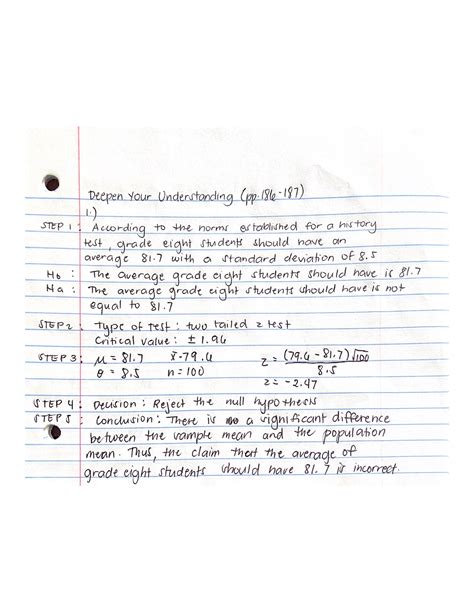 Deepen Your Understanding (pp. 186-187)
1.)
STEP 1 : According to the norms established for a history
test, grade eight students should have an
average 81.7 with a standard deviation of 8.5
Ho : The average grade eight students should have is 81.7
Ha : The average grade eight students should have is not
equal to 81.7
STEP 2 : Type of test : two tailed z test
Critical value : ± 1.96
STEP 3 : μ = 81.7 x̄ - 79.6 z = (79.6 - 81.7)√100
θ = 8.5 n = 100 8.5
z = - 2.47
STEP 4 : Decision : Reject the null hypothesis
STEP 5 : Conclusion : There is a significant difference
between the sample mean and the population
mean. Thus, the claim that the average of
grade eight students should have 81.7 is incorrect.